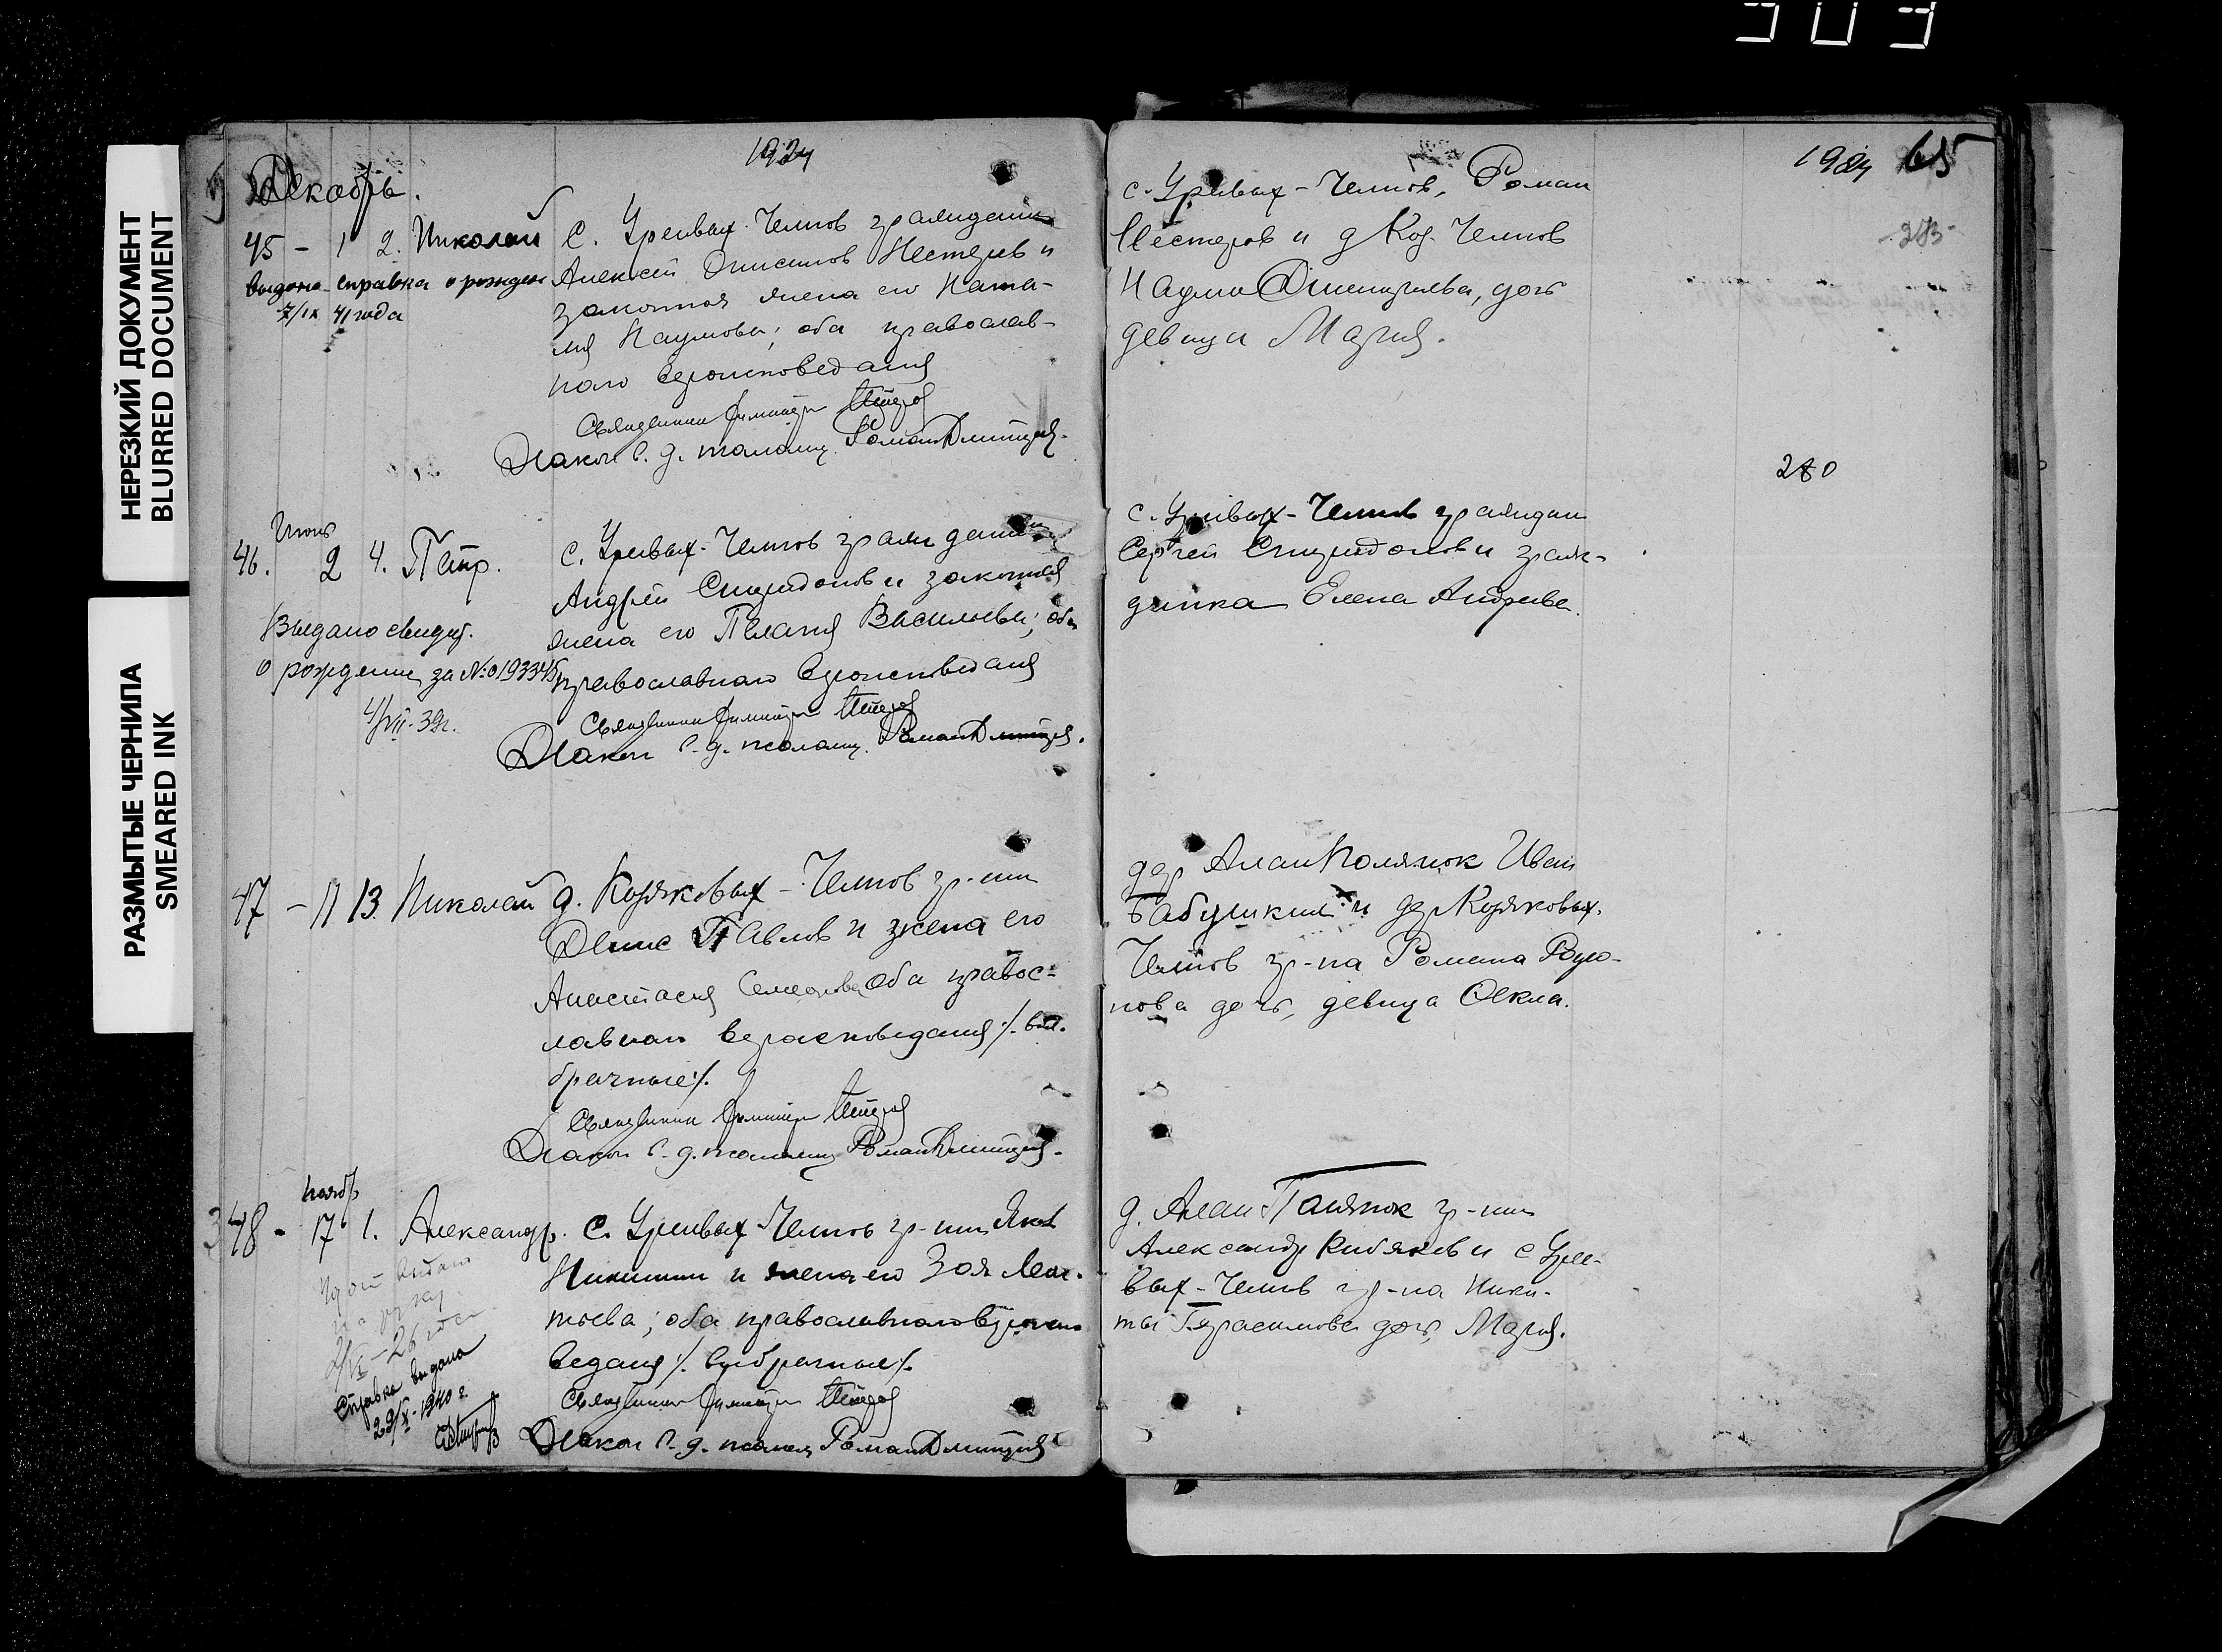 303
НЕРЕЗКИЙ ДОКУМЕНТ
BLURRED DOCUMENT
РАЗМЫТЫЕ ЧЕРНИЛА
SMEARED INK
1924
Декабрь.
45 - 1 2. Николай
выдана справка о рожден
7/IX 41 года
С. Уреевых-Челнов гражданин
Алексей Онисимов Нестеров и
законная жена его Ната-
лия Наумова; оба православ-
наго вероисповедания
Священник Димитрий
Диакон с. д. псаломщ. Роман Дмитриев.
Июнь
46. 2 4. Петр.
Выдано свидет.
о рождении за № 019334
4/VII-39г.
с. Уреевых-Челнов гражданин
Андрей Спиридонов и законная
жена его Пелагия Васильева; оба
православнаго вероисповедания
Священник Димитрий
Диакон с. д. псаломщ. Роман Дмитриев.
47 - 11 13. Николай
д. Коряковых-Челнов гр-нин
Денис Павлов и жена его
Анастасия Семенова оба правос-
лавнаго вероисповедания /. вне.
брачные /.
Священник Димитрий
Диакон с. д. псаломщ Роман Дмитриев.
ноябр
48 - 17 1. Александр.
2/VI-26 года
Справка выдана
29/X-1940 г.
С. Уреевых Челнов гр-нин Яков
Никитин и жена его Зоя Леон-
тьева; оба православнаго вероиспо
ведания /. внебрачные /.
Священник Димитрий
Диакон с. д. псалом Роман Дмитриев
1924 65
283
с. Уреевых-Челнов, Роман
Нестеров и д Кор. Челнов
Наума дочь
девица Мария.
280
с. Уреевых-Челнов граждан
Сергей Спиридонов и граж-
данка Елена Андреева.
дер Алан Полянок Иван
Бабушкин и дер Коряковых.
Челнов гр-на Романа Родио-
нова дочь, девица Фекла.
д. Алан Полянок гр-нин
Александр Кибяков и с Урее-
вых-Челнов гр-на Ники-
ты Герасимова дочь, Мария.